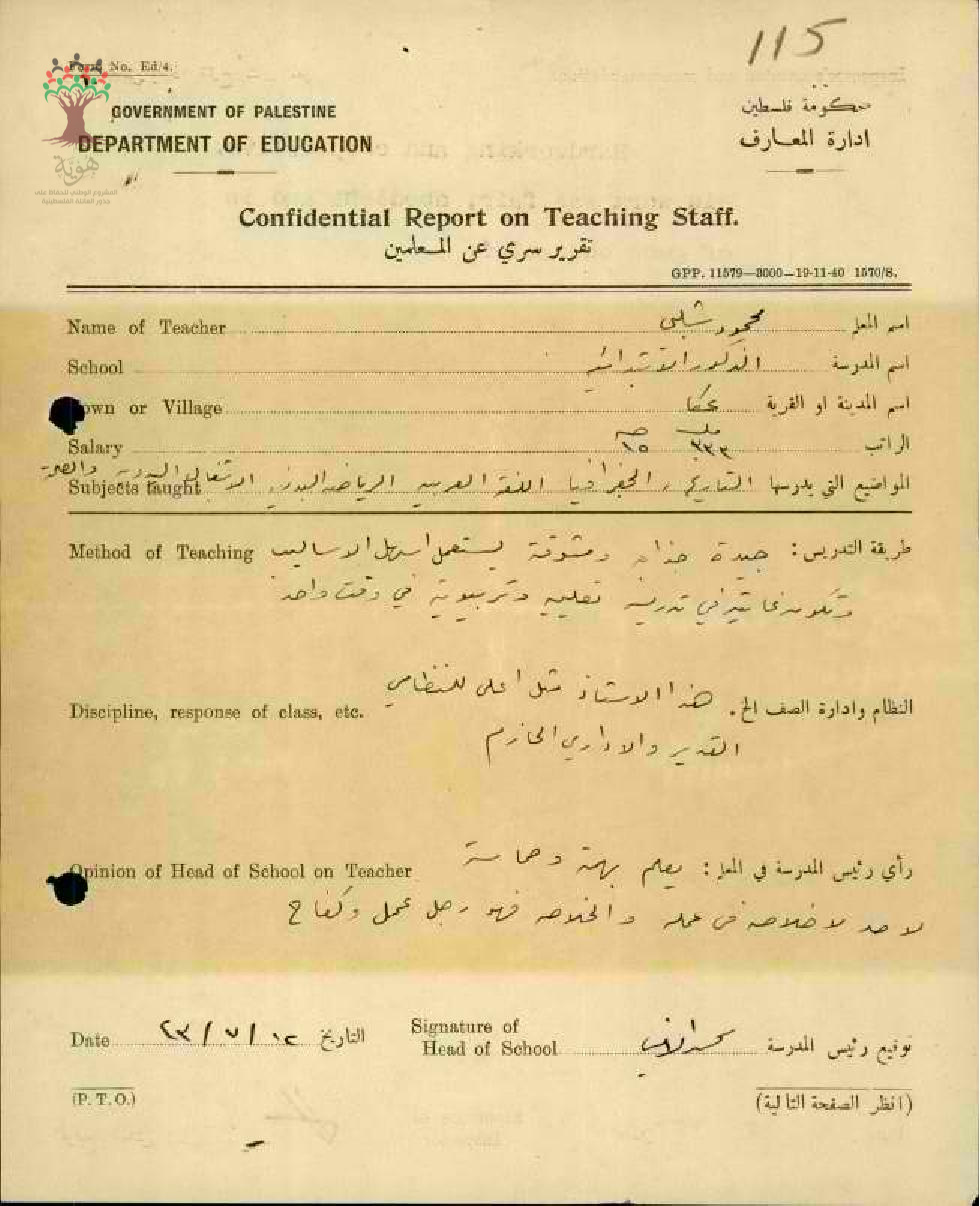 115
Form No. Ed/4.
GOVERNMENT OF PALESTINE
حكومة فلسطين
DEPARTMENT OF EDUCATION
ادارة المعارف
هوية
المشروع الوطني للحفاظ على
جذور العائلة الفلسطينية
Confidential Report on Teaching Staff.
تقرير سري عن المعلمين
GPP. 11579—3000—19-11-40 1570/8.
Name of Teacher محمود شلبي اسم المعلم
School الذكور الابتدائية اسم المدرسة
Town or Village عكا اسم المدينة او القرية
مل جـ
Salary ١٥ ٣٣٣ الراتب
المواضيع التي يدرسها التاريخ، الجغرافيا اللغة العربية الرياضة البدنية الاشغال اليدوية والصحة
Subjects taught
Method of Teaching طريقة التدريس: جيدة جذابه ومشوقة يستعمل اسهل الاساليب
وتكون غايته في تدريسه تعليميه وتربيوية في وقت واحد
النظام وادارة الصف الخ. هذا الاستاذ مثل اعلى للنظامي
Discipline, response of class, etc.
القدير والاداري الحازم
Opinion of Head of School on Teacher رأي رئيس المدرسة في المعلم: يعلم بهمة وحماسة
لا حد لاخلاصه في عمله والخلاصه فهو رجل عمل وكفاح
Date ١٢ / ٧ / ٤٣ التاريخ
Signature of
Head of School توقيع رئيس المدرسة
(P. T. O.) (انظر الصفحة التالية)